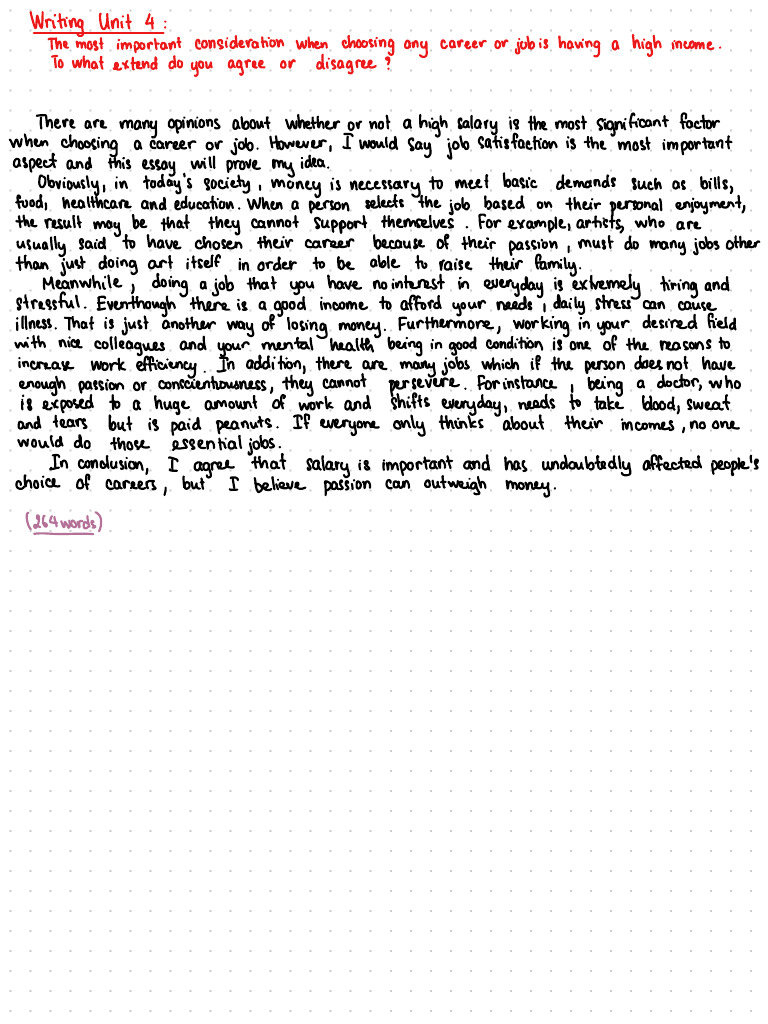 Writing Unit 4 :
The most important consideration when choosing any career or job is having a high income.
To what extend do you agree or disagree ?
There are many opinions about whether or not a high salary is the most significant factor
when choosing a career or job. However, I would say job satisfaction is the most important
aspect and this essay will prove my idea.
Obviously, in today's society, money is necessary to meet basic demands such as bills,
food, healthcare and education. When a person selects the job based on their personal enjoyment,
the result may be that they cannot support themselves. For example, artists, who are
usually said to have chosen their career because of their passion, must do many jobs other
than just doing art itself in order to be able to raise their family.
Meanwhile, doing a job that you have no interest in everyday is extremely tiring and
stressful. Eventhough there is a good income to afford your needs, daily stress can cause
illness. That is just another way of losing money. Furthermore, working in your desired field
with nice colleagues and your mental health being in good condition is one of the reasons to
increase work efficiency. In addition, there are many jobs which if the person does not have
enough passion or conscientiousness, they cannot persevere. For instance, being a doctor, who
is exposed to a huge amount of work and shifts everyday, needs to take blood, sweat
and tears but is paid peanuts. If everyone only thinks about their incomes, no one
would do those essential jobs.
In conclusion, I agree that salary is important and has undoubtedly affected people's
choice of careers, but I believe passion can outweigh money.
(264 words)